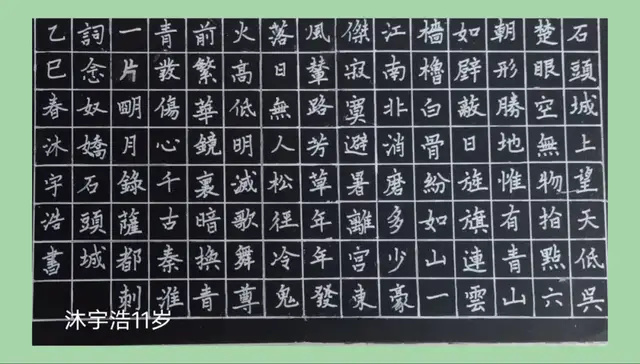 石頭城上望天低吳
楚眼空無物指點六
朝形勝地惟有青山
如壁蔽日旌旗連雲
檣櫓白骨紛如山一
江南北消磨多少豪
傑寂寞避暑離宮東
風輦路芳草年年發
落日無人松徑冷鬼
火高低明滅歌舞尊
前繁華鏡裏暗換青
青髮傷心千古秦淮
一片明月錄薩都刺
詞念奴嬌石頭城
乙巳春沐宇浩書
沐宇浩11岁